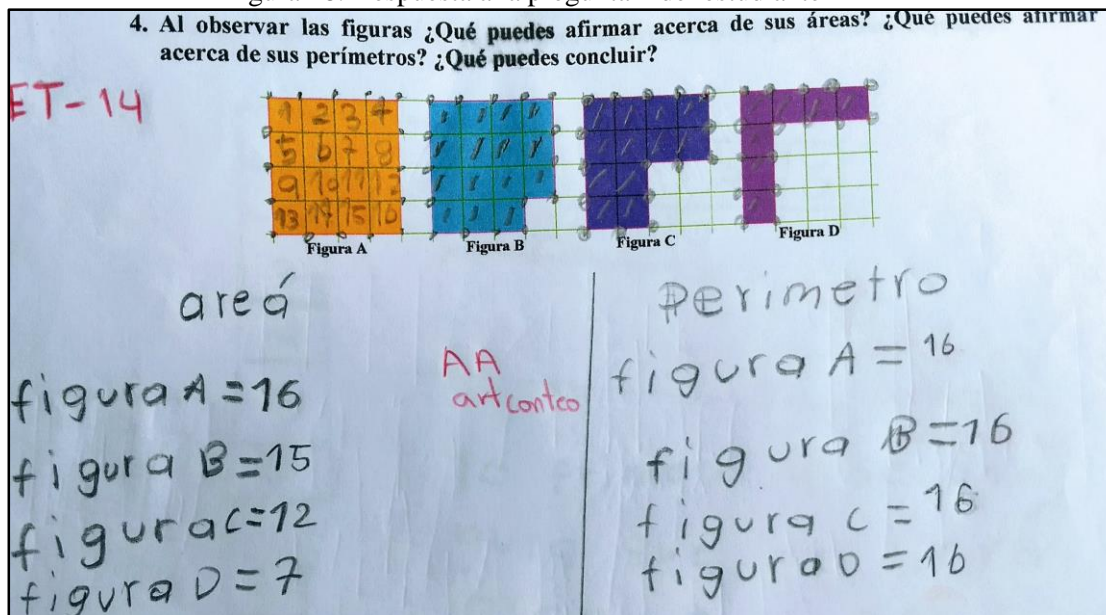 4. Al observar las figuras ¿Qué puedes afirmar acerca de sus áreas? ¿Qué puedes afirmar
acerca de sus perímetros? ¿Qué puedes concluir?
ET-14
1 2 3 4
5 6 7 8
9 10 11 12
13 14 15 16
Figura A
Figura B
Figura C
Figura D
areá
figura A = 16
figura B = 15
figura C = 12
figura D = 7
AA
art conteo
Perimetro
figura A = 16
figura B = 16
figura C = 16
figura D = 16